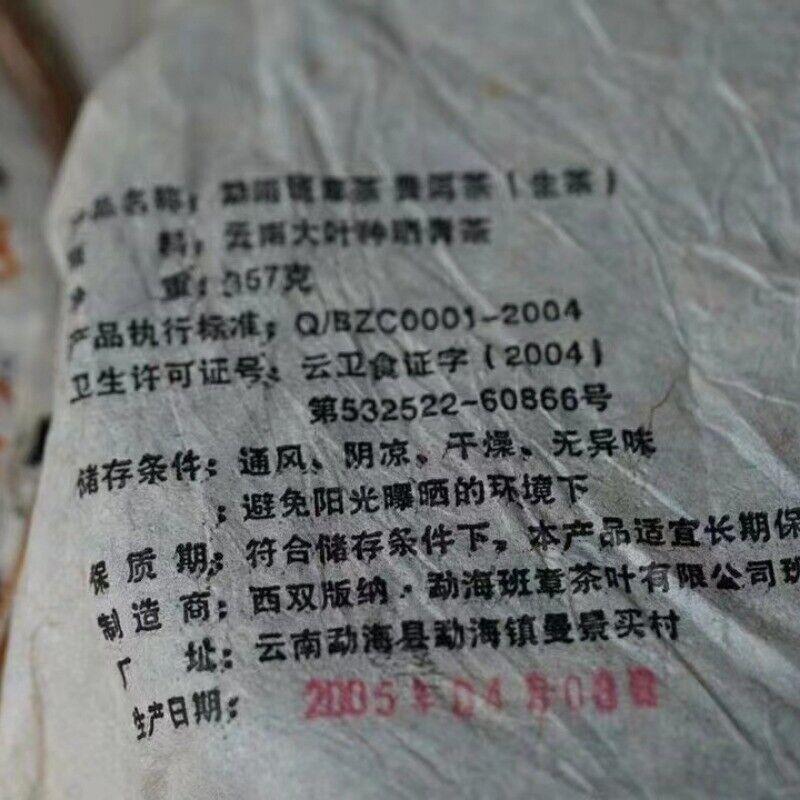 品名称：勐海班章茶 普洱茶（生茶）
料：云南大叶种晒青茶
重：357克
产品执行标准：Q/BZC0001-2004
卫生许可证号：云卫食证字（2004）
第532522-60866号
储存条件：通风、阴凉、干燥、无异味
：避免阳光曝晒的环境下
保 质 期：符合储存条件下，本产品适宜长期保
制 造 商：西双版纳·勐海班章茶叶有限公司班
厂 址：云南勐海县勐海镇曼景买村
生产日期：2005年04月08日